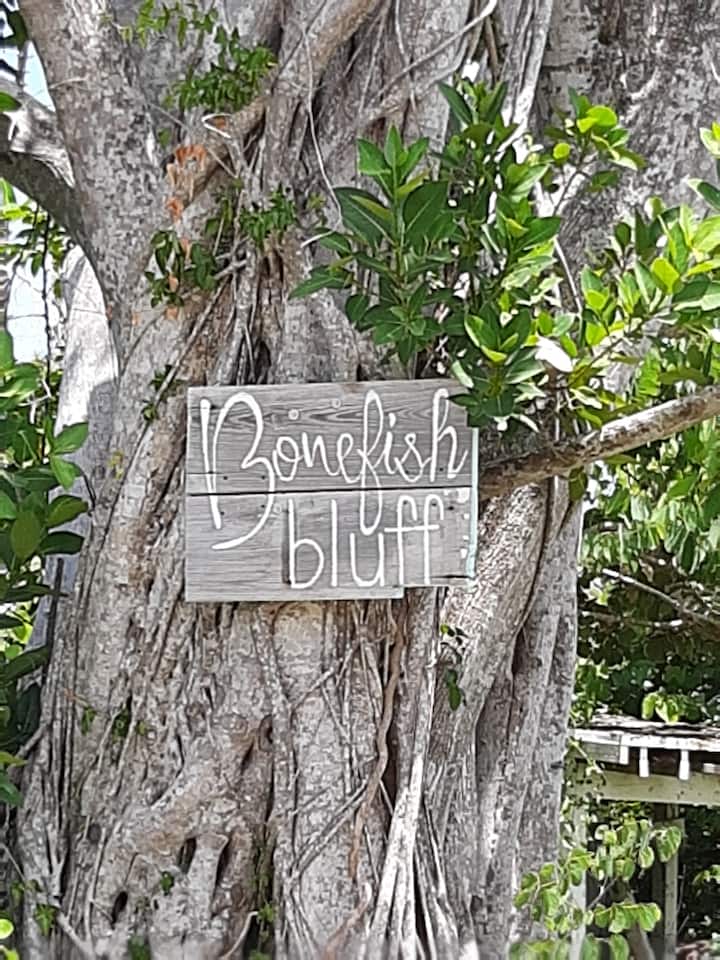 Bonefish
bluff